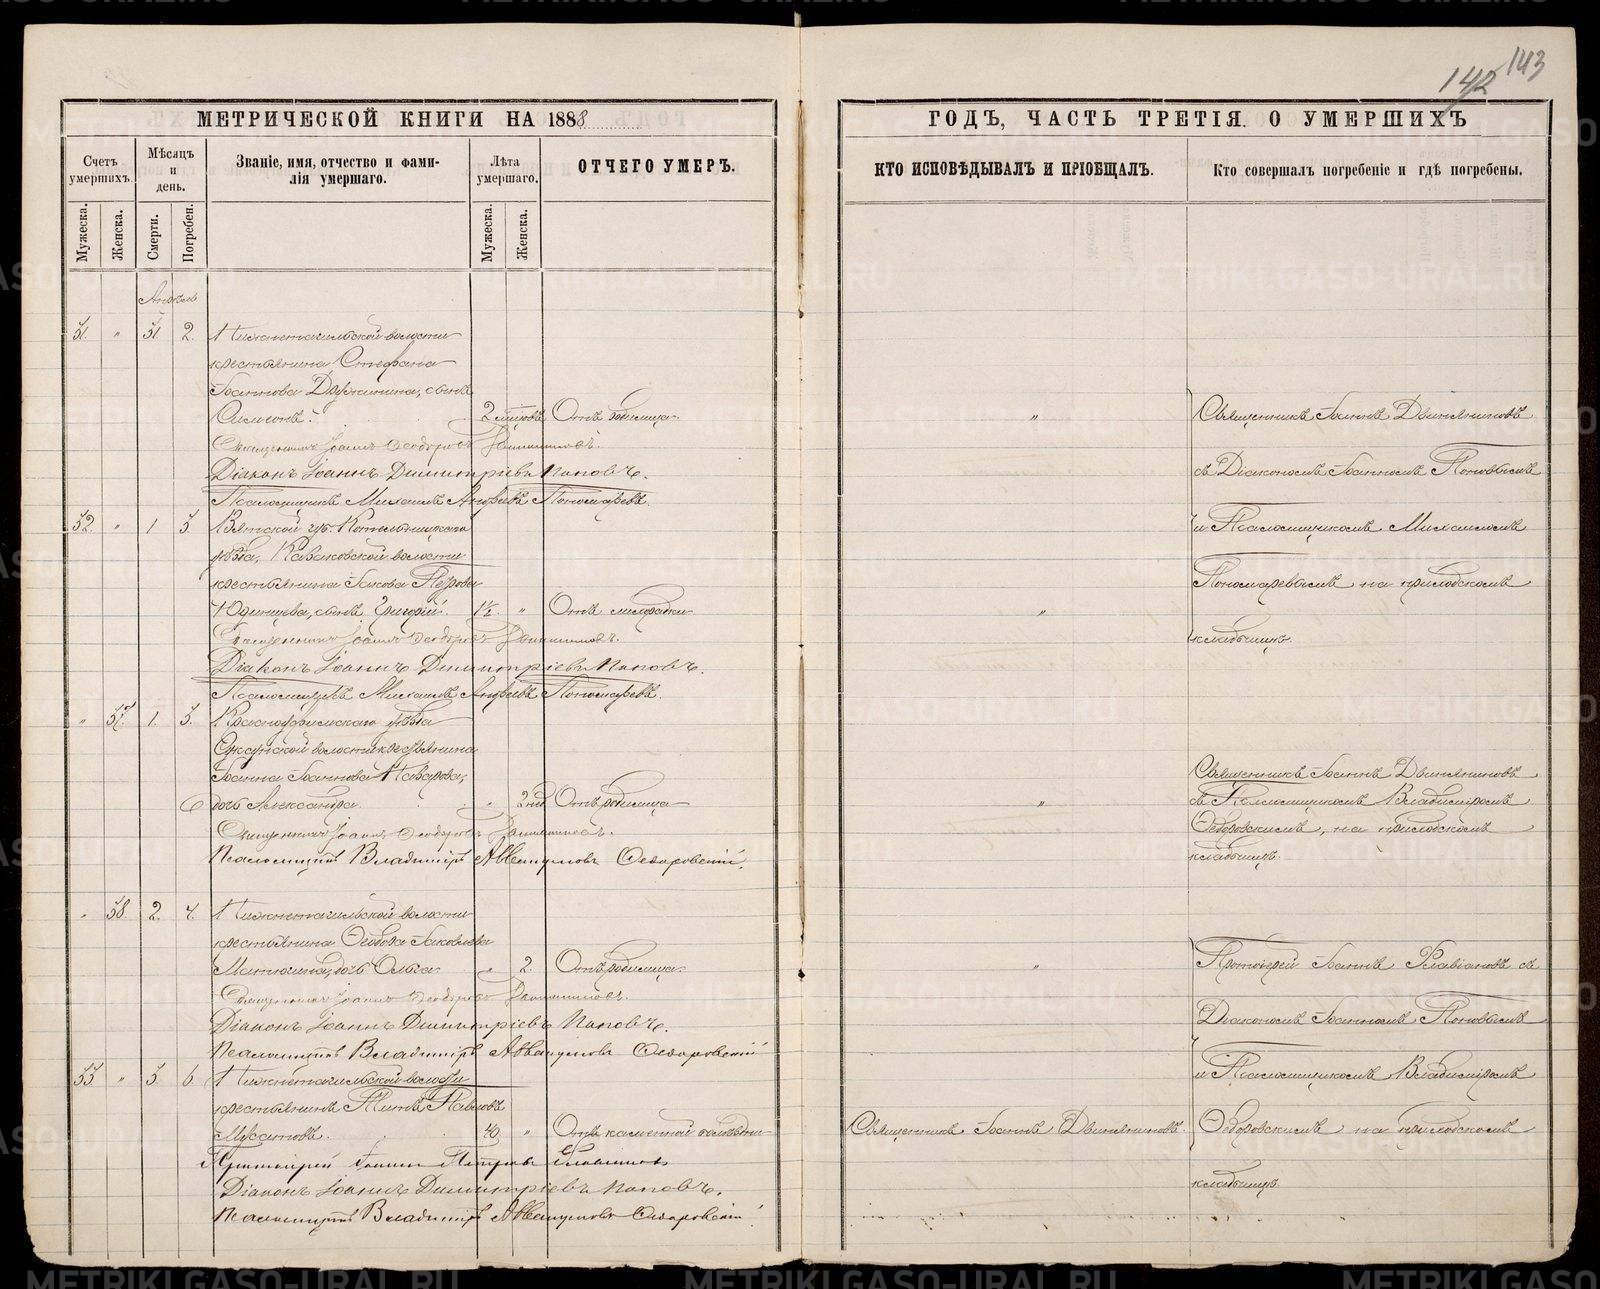 142 143
МЕТРИЧЕСКОЙ КНИГИ НА 1888
ГОДЪ, ЧАСТЬ ТРЕТІЯ. О УМЕРШИХЪ
Счетъ умершихъ.
Мѣсяцъ и день.
Званіе, имя, отчество и фами-
лія умершаго.
Лѣта умершаго.
ОТЧЕГО УМЕРЪ.
КТО ИСПОВѢДЫВАЛЪ И ПРІОБЩАЛЪ.
Кто совершалъ погребеніе и гдѣ погребены.
Мужеска.
Женска.
Смерти.
Погребен.
Мужеска.
Женска.
51. " 31 2. Нижнетагильской волости
крестьянина Стефана
Іоаннова сынъ
Симеонъ. 2 Отъ родимца. " Священникъ Іоаннъ Двиняниновъ
Священникъ Іоаннъ Ѳеодоровъ Двиняниновъ.
Діаконъ Іоаннъ Димитріевъ Поповъ. съ Діакономъ Іоанномъ Поповымъ
Псаломщикъ Михаилъ Андреевъ Пономаревъ.
52. " 1 3. Вятской губ. Котельническаго и Псаломщикомъ Михаиломъ
уѣзда, волости
крестьянина Іакова Петрова Пономаревымъ на приходскомъ
Юдинцева, сынъ Григорій. 1½. " Отъ лихорадки "
Священникъ Іоаннъ Ѳеодоровъ Двиняниновъ. кладбищѣ.
Діаконъ Іоаннъ Димитріевъ Поповъ.
Псаломщикъ Михаилъ Андреевъ Пономаревъ.
" 57. 1. 3. Красноуфимскаго уѣзда
волости крестьянина
Іоанна Іоаннова Назарова, Священникъ Іоаннъ Двиняниновъ
дочь Александра. " 2 нед. Отъ родимца " съ Псаломщикомъ Владиміромъ
Священникъ Іоаннъ Ѳеодоровъ Двиняниновъ. Ѳедоровскимъ, на приходскомъ
Псаломщикъ Владиміръ Аввакумовъ Ѳедоровскій. кладбищѣ.
" 58. 2. 4. Нижнетагильской волости
крестьянина Ѳедора Іаковлева
дочь Ольга. " 2. Отъ родимца. " Протоіерей Іоаннъ Флавіановъ съ
Священникъ Іоаннъ Ѳеодоровъ Двиняниновъ.
Діаконъ Іоаннъ Димитріевъ Поповъ. Діакономъ Іоанномъ Поповымъ
Псаломщикъ Владиміръ Аввакумовъ Ѳедоровскій
53. " 5. 6. Нижнетагильской волости и Псаломщикомъ Владиміромъ
крестьянинъ Титъ Павловъ
40. " Отъ каменной болѣзни Священникъ Іоаннъ Двиняниновъ. Ѳедоровскимъ на приходскомъ
Протоіерей Іоаннъ Петровъ Флавіановъ
Діаконъ Іоаннъ Димитріевъ Поповъ. кладбищѣ.
Псаломщикъ Владиміръ Аввакумовъ Ѳедоровскій
METRIKI.GASO-URAL.RU